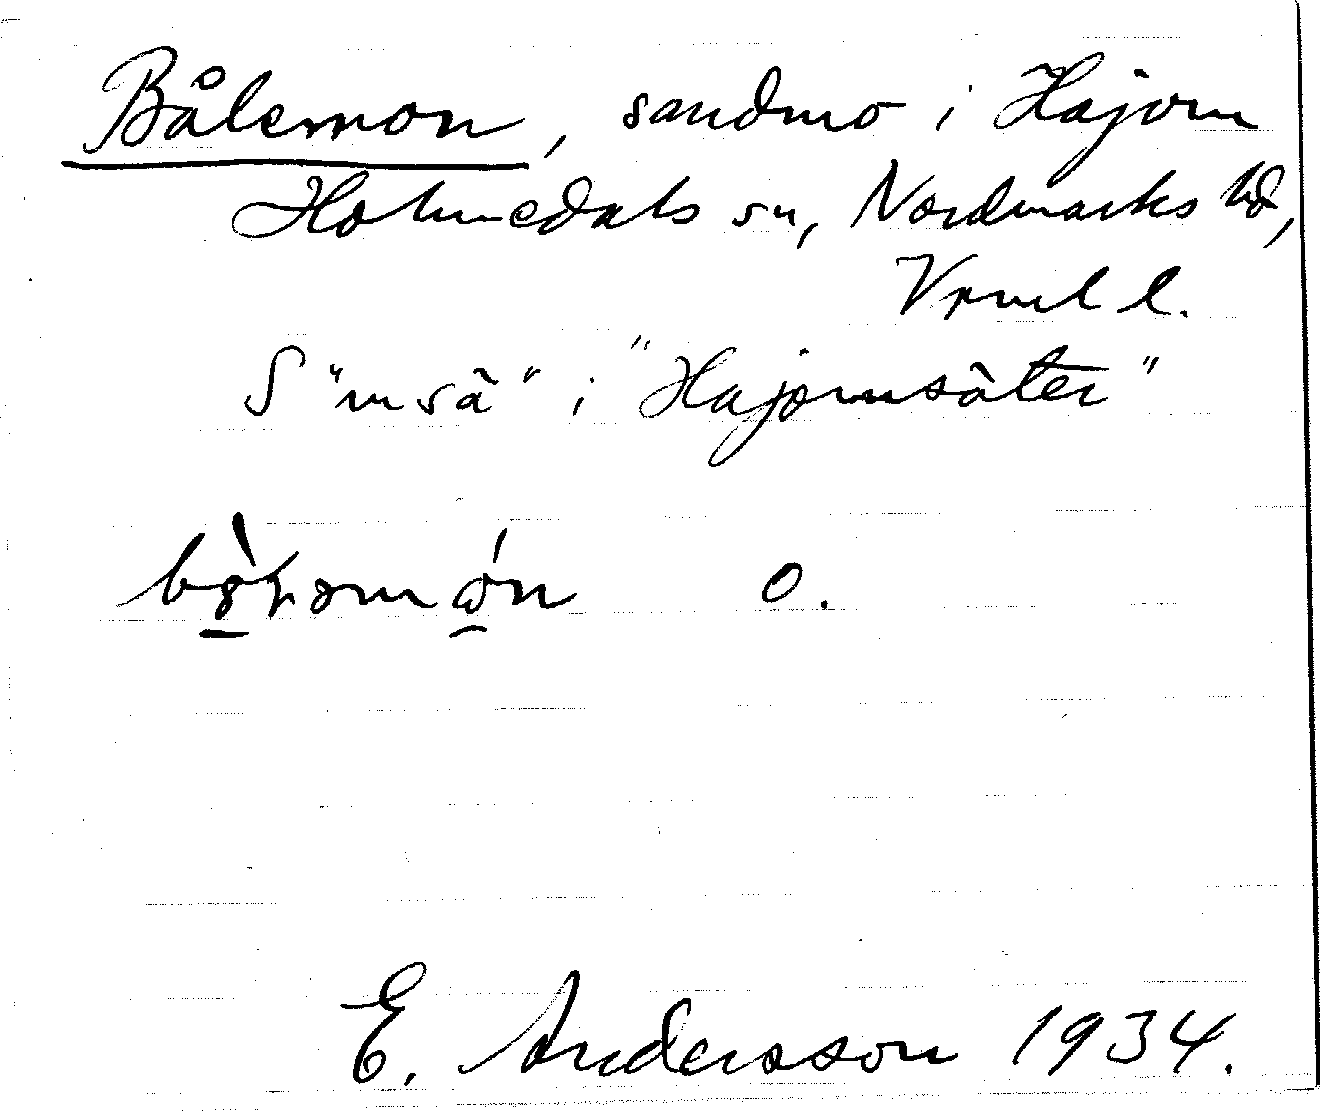 Bålemon, sandmo i Hajom
Holmedals sn, Nordmarks hd,
Vrml l.
S "m så" i "Hajomsäter"
o.
E. Andersson 1934.